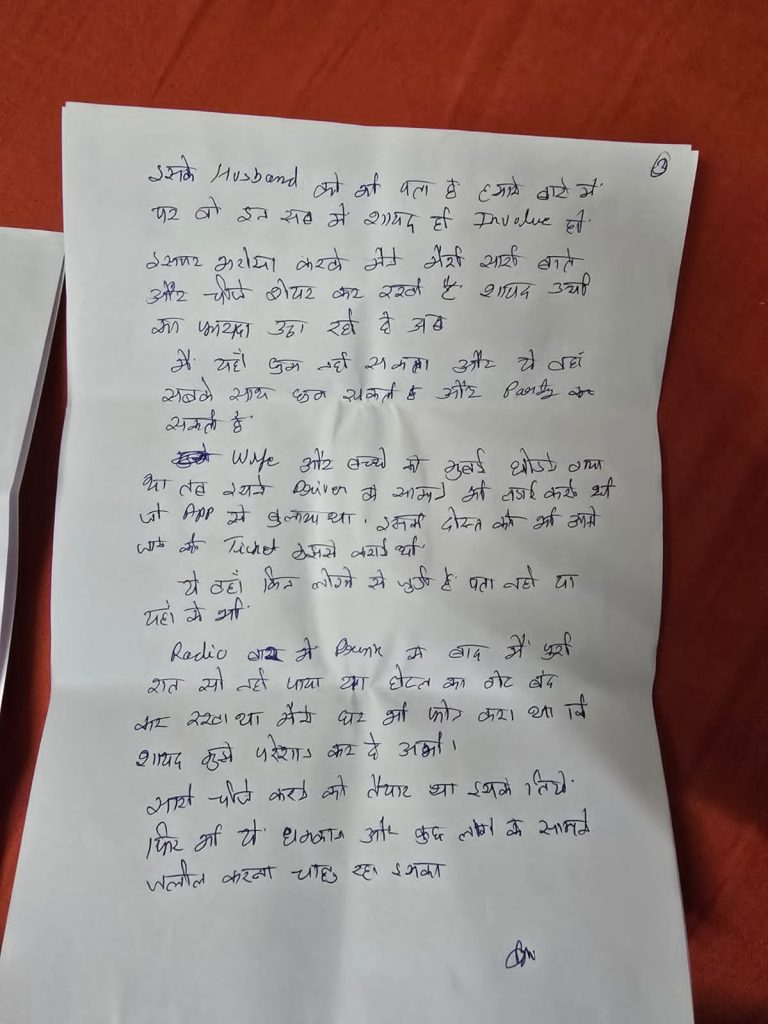 3
इसके Husband को भी पता है हमारे बारे में
पर वो इन सब में शायद ही Involve हो
इसपर भरोसा करके मैंने मेरी सारी बातें
और चीजें शेयर कर रखी है शायद उसी
का फायदा उठा रहे है अब
मैं यहाँ घुम नहीं सकता और ये वहाँ
सबके साथ घुम सकती है और Party कर
सकती है
Wife और बच्चे को मुंबई छोडने गया
था तब इसने Driver के सामने भी
जो App से बुलाया था। इसकी दोस्त को भी आने
जाने की Ticket मुझसे कराई थी
ये वहाँ किन लोगो से जुडी है पता नहीं या
यहाँ से भी
Radio बार में Drunk के बाद मैं पुरी
रात सो नहीं पाया था होटल का गेट बंद
कर रखा था मैंने घर भी फोन करा था कि
शायद मुझे परेशान कर दे अभी।
सारी चीजे करने को तैयार था इसके लिये
फिर भी ये धमकाना और कुछ लोगो के सामने
जलील करना चाह रहा इसका